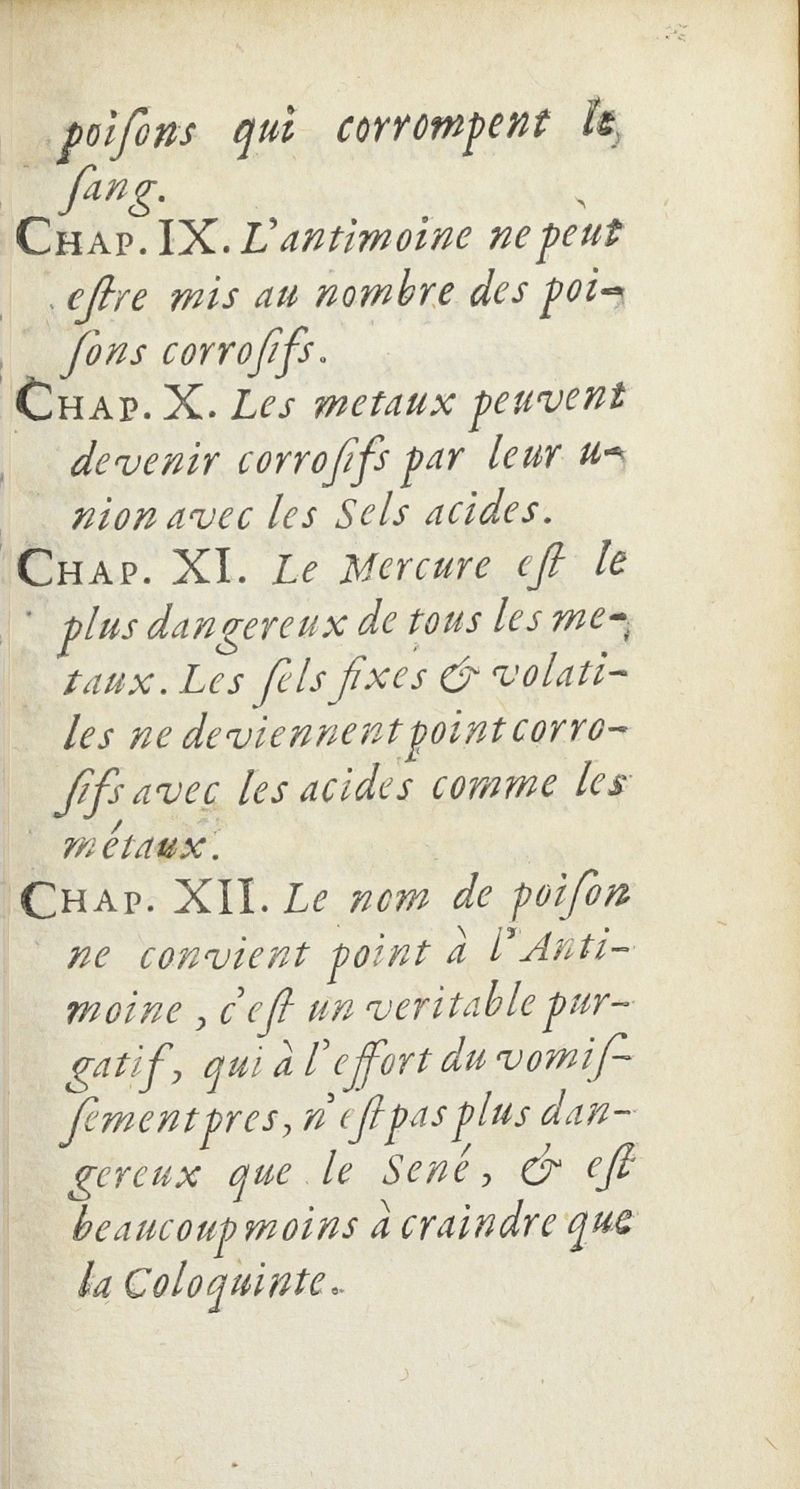 poiſons qui corrompent le
ſang.
CHAP. IX. L'antimoine ne peut
eſtre mis au nombre des poi-
ſons corroſifs.
CHAP. X. Les metaux peuvent
devenir corroſifs par leur u-
nion avec les Sels acides.
CHAP. XI. Le Mercure eſt le
plus dangereux de tous les me-
taux. Les ſels fixes & volati-
les ne deviennent point corro-
ſifs avec les acides comme les
métaux.
CHAP. XII. Le nom de poiſon
ne convient point à l'Anti-
moine, c'eſt un veritable pur-
gatif, qui à l'effort du vomiſ-
ſement pres, n'eſt pas plus dan-
gereux que le Sené, & eſt
beaucoup moins à craindre que
la Coloquinte.